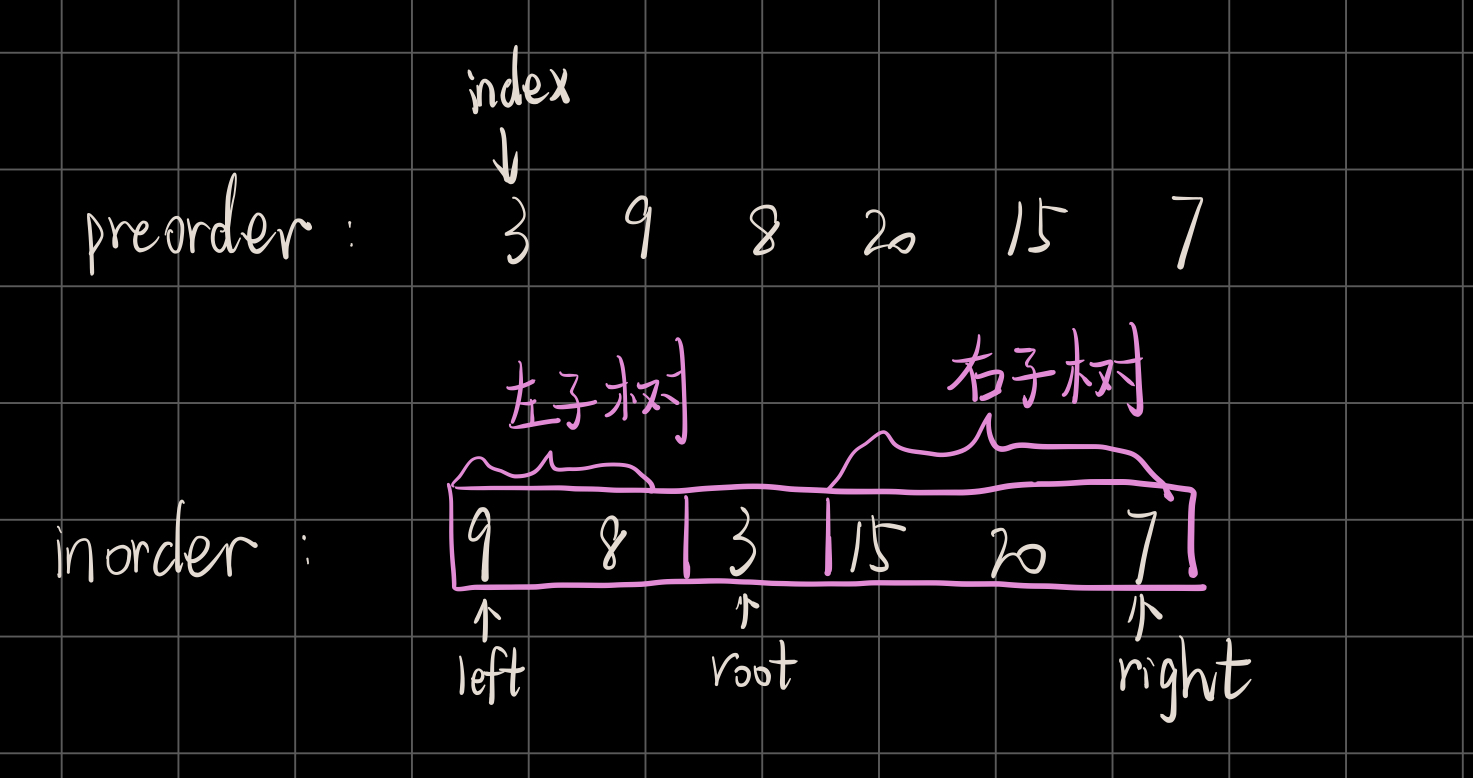 index
preorder : 3 9 8 20 15 7
左子树 右子树
inorder : 9 8 3 15 20 7
left root right